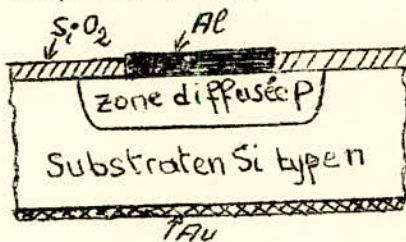 SiO2
Al
zone diffusée p
Substrat en Si type n
Au